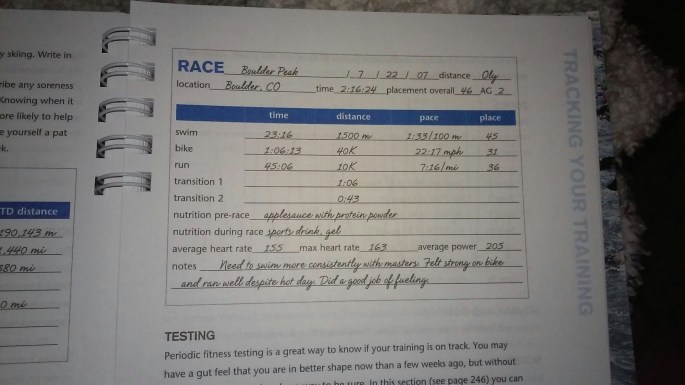 y skiing. Write in
ribe any soreness
Knowing when it
ore likely to help
e yourself a pat
k.
TD distance
190,143 m
1,440 mi
880 mi
0 mi
RACE Boulder Peak / 7 / 22 / 07 distance Oly
location Boulder, CO time 2:16:24 placement overall 46 AG 2
time distance pace place
swim 23:16 1500 m 1:33/100 m 45
bike 1:06:13 40K 22.17 mph 31
run 45:06 10K 7:16/mi 36
transition 1 1:06
transition 2 0:43
nutrition pre-race applesauce with protein powder
nutrition during race sports drink, gel
average heart rate 155 max heart rate 163 average power 205
notes Need to swim more consistently with masters. Felt strong on bike
and ran well despite hot day. Did a good job of fueling.
TESTING
Periodic fitness testing is a great way to know if your training is on track. You may
have a gut feel that you are in better shape now than a few weeks ago, but without
to be sure. In this section (see page 246) you can
TRACKING YOUR TRAINING